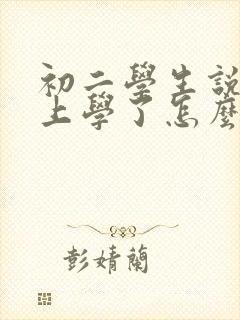 初二學生說
上學了怎麼
彭婧蘭